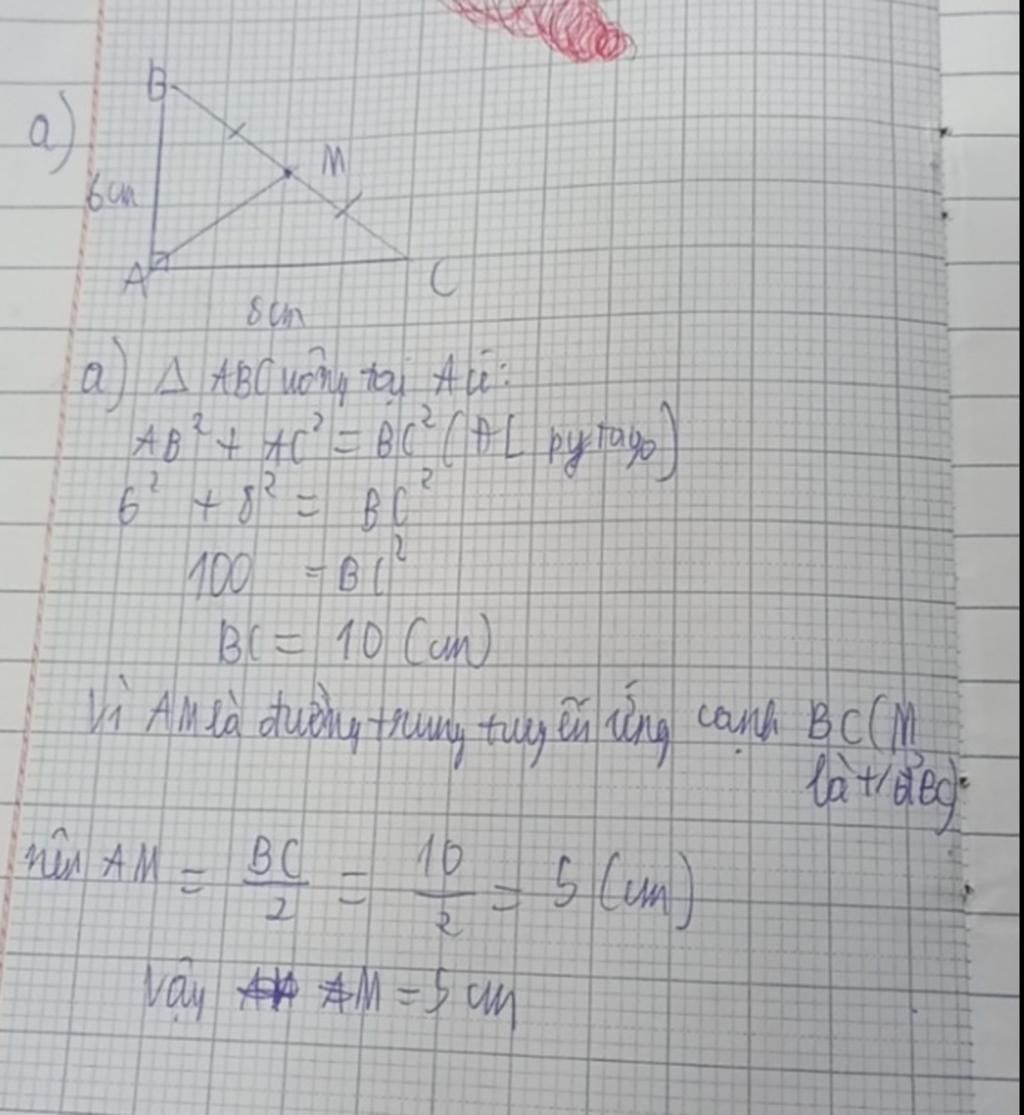 a)
B
M
6cm
A
C
8cm
a) Δ ABC vuông tại A có:
AB² + AC² = BC² (ĐL pytago)
6² + 8² = BC²
100 = BC²
BC = 10 (cm)
Vì AM là đường trung tuyến ứng cạnh BC (M
là t/đ BC)
nên AM = BC/2 = 10/2 = 5 (cm)
Vậy AM = 5 cm